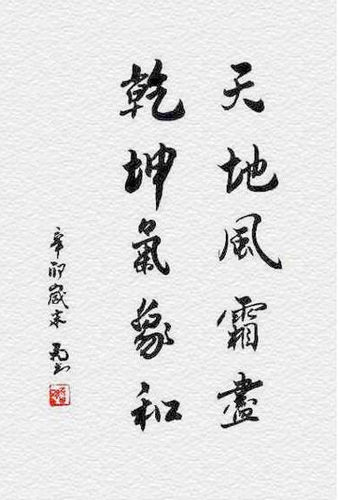 天地風霜盡
乾坤氣象和
辛卯歲末